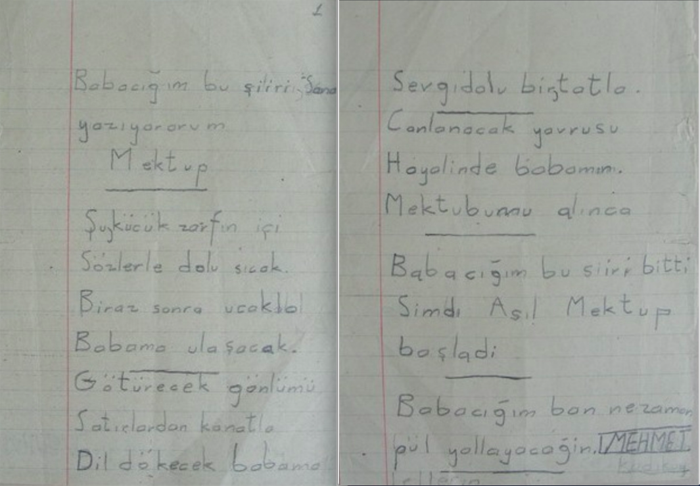 1
Babacığım bu şiiri Sana
yazıyororum
Mektup
Şuyküçük zarfın içi
Sözlerle dolu sıcak.
Biraz sonra ucakla
Babama ulaşacak.
Götürecek gönlümü
Satırlardan kanatla
Dil dökecek babama
Sevgidolu birtatla.
Canlanacak yavrusu
Hayalinde babamın.
Mektubumu alınca
Babacığım bu siiri bitti
Simdi Asıl Mektup
başladi
Babacığım ban nezaman
pul yallayacağin. MEHMET